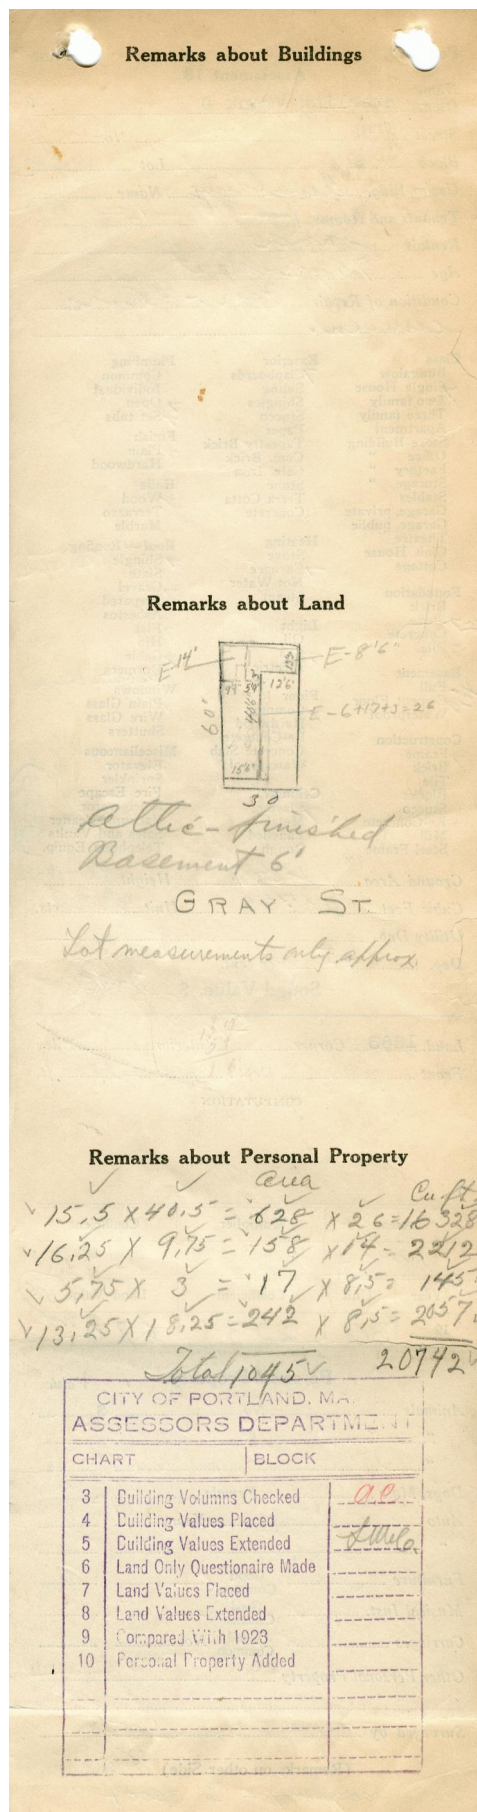 Remarks about Buildings
Remarks about Land
E 14'
E-8'6"
12'6"
60'
E-6+17+3=26
15'6"
30
Attic - finished
Basement 6'
GRAY ST.
Lot measurements only approx
Remarks about Personal Property
area
Cu.ft.
15.5 X 40.5 = 628 X 26 = 16328
16.25 X 9.75 = 158 X 14 = 2212
5.75 X 3 = 17 X 8.5 = 145
13.25 X 18.25 = 242 X 8.5 = 2057
Total 1045 20742
CITY OF PORTLAND, MA
ASSESSORS DEPARTMENT
CHART BLOCK
3 Building Volumns Checked
4 Building Values Placed
5 Building Values Extended
6 Land Only Questionaire Made
7 Land Values Placed
8 Land Values Extended
9 Compared With 1923
10 Personal Property Added